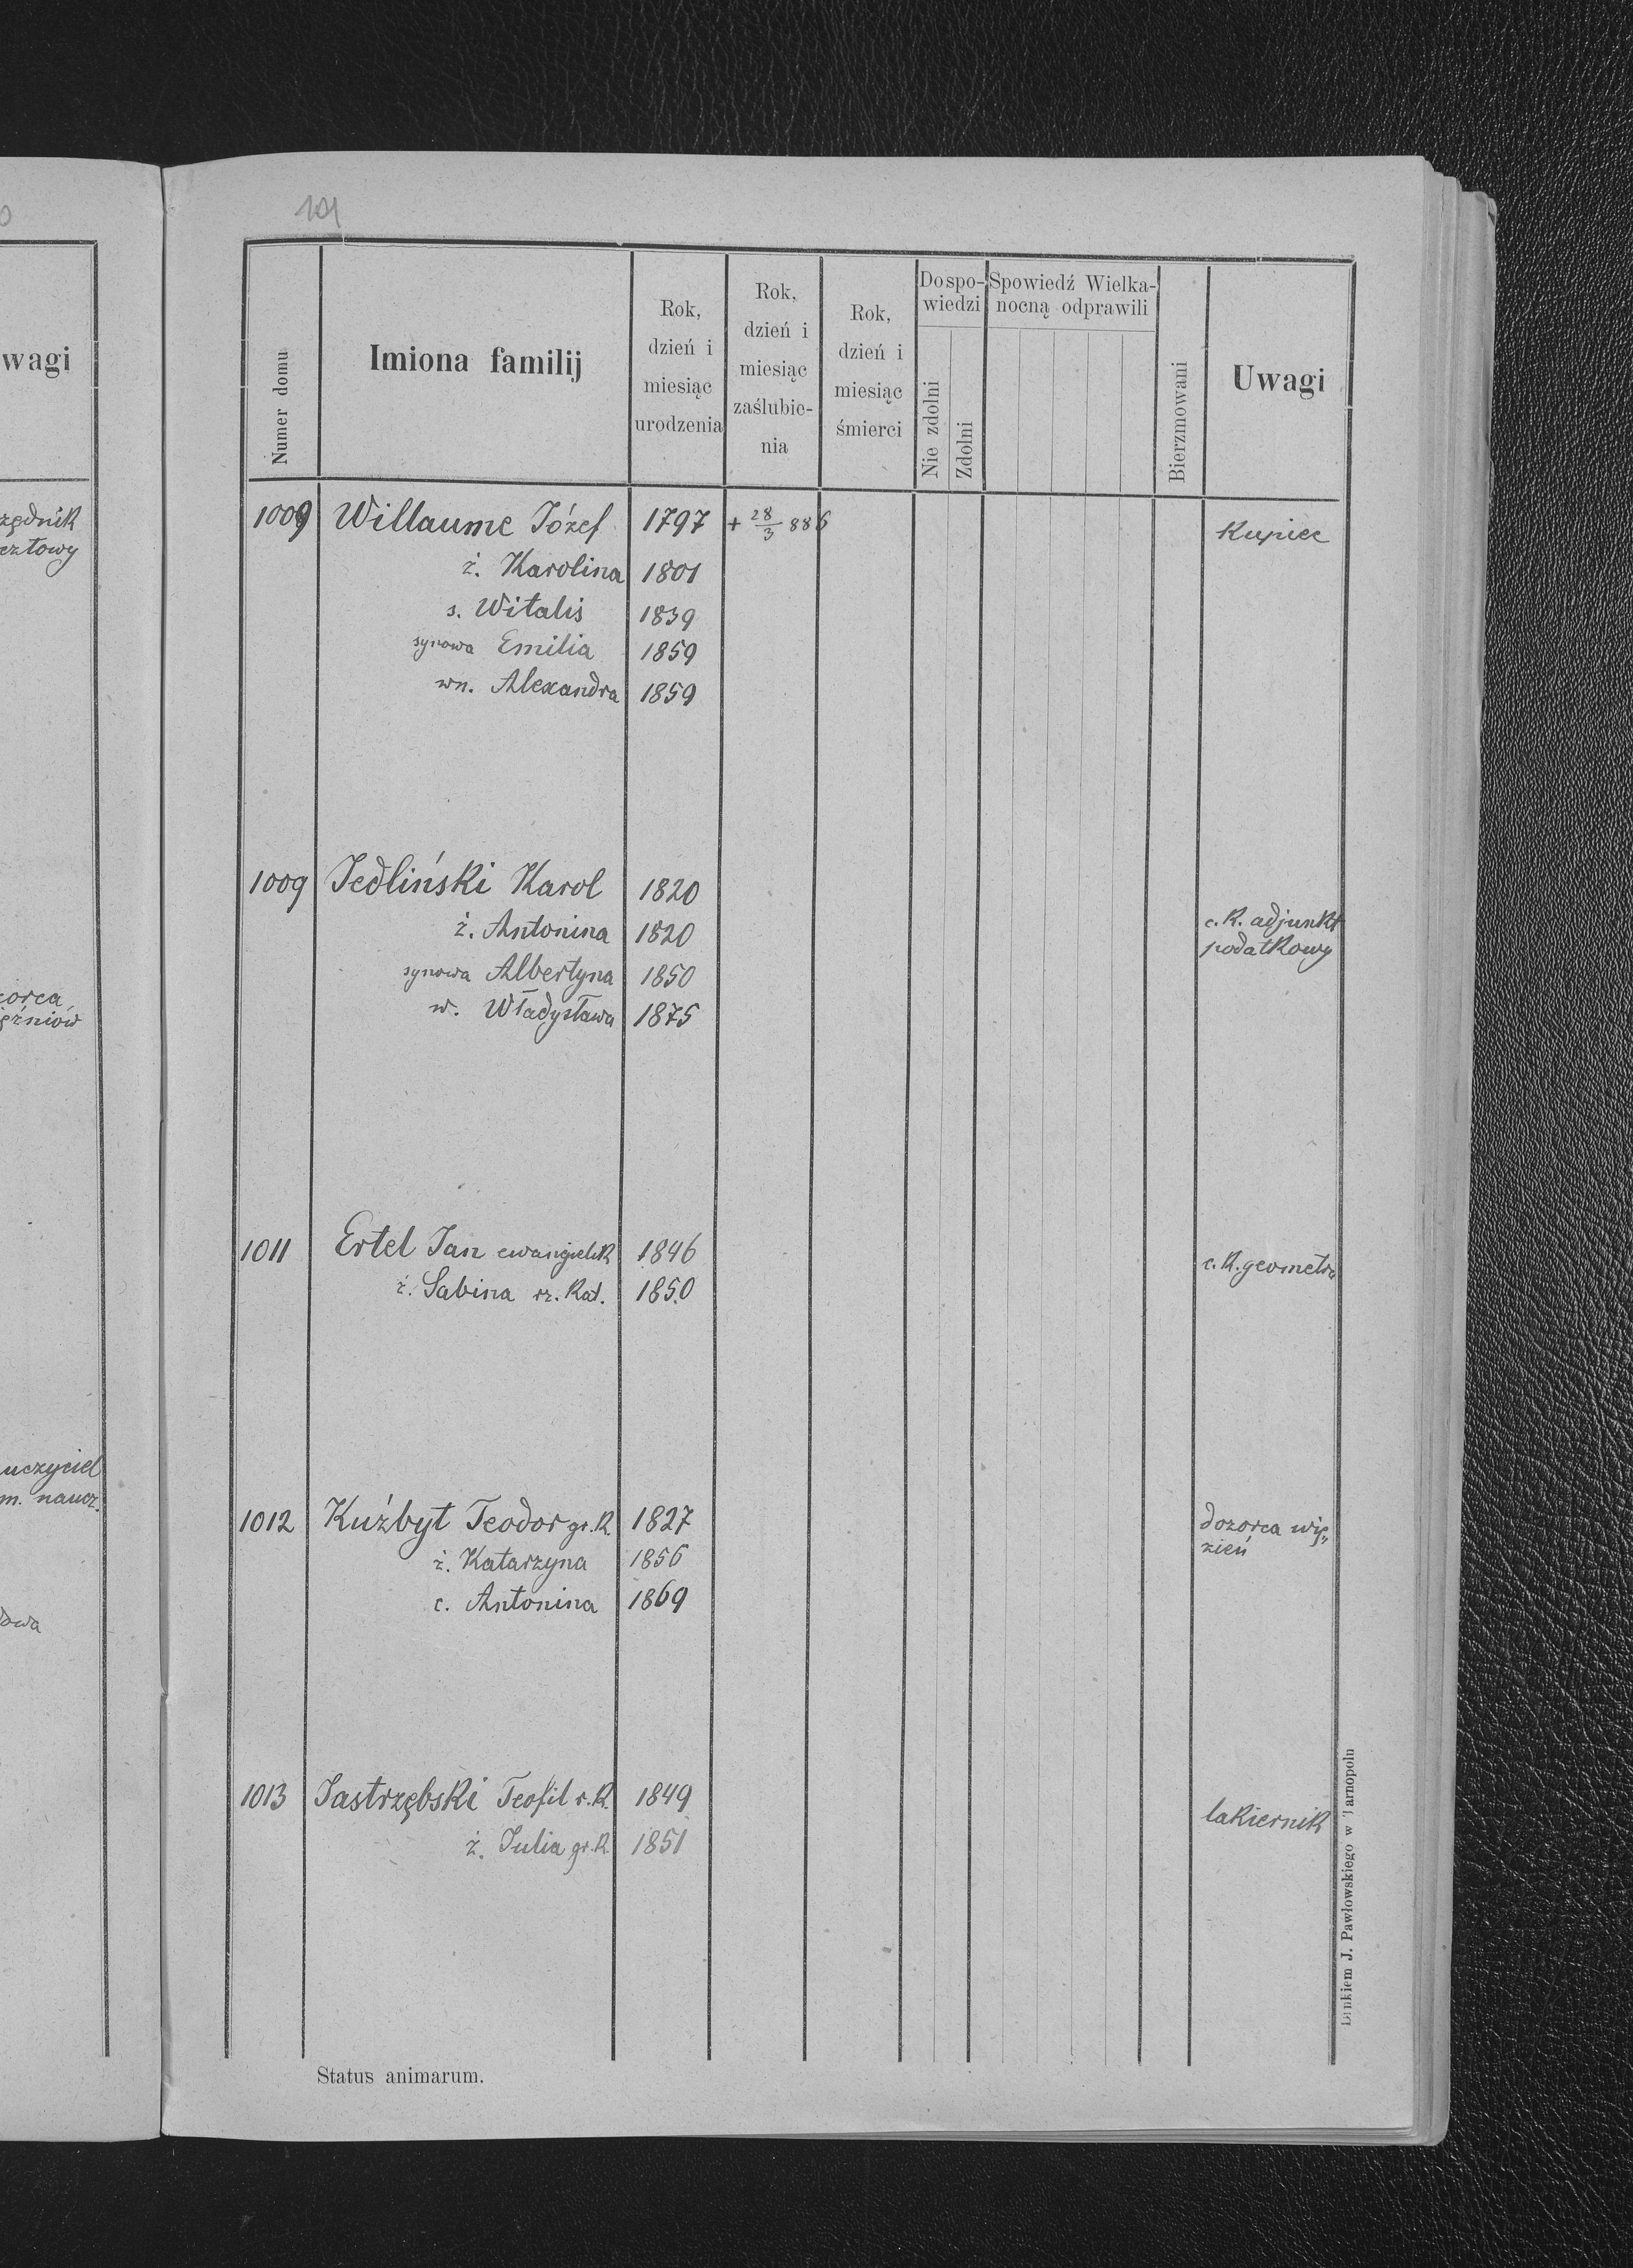 101
wagi
Numer domu
Imiona familij
Rok,
dzień i
miesiąc
urodzenia
Rok,
dzień i
miesiąc
zaślubie-
nia
Rok,
dzień i
miesiąc
śmierci
Do spo-
wiedzi
Nie zdolni
Zdolni
Spowiedź Wielka-
nocną odprawili
Bierzmowani
Uwagi
1009 Willaume Józef 1797 + 28/3 886 Kupiec
ż. Karolina 1801
s. Witalis 1839
synowa Emilia 1859
wn. Alexandra 1859
1009 Jedliński Karol 1820
ż. Antonina 1820 c. k. adjunkt
podatkowy
synowa Albertyna 1850
w. Władysława 1875
1011 Ertel Jan ewangielik 1846 c. k. geometra
ż. Sabina rz. kat. 1850
1012 Kuźbyt Teodor gr. k. 1827 dozorca wię„
zień
ż. Katarzyna 1856
c. Antonina 1869
1013 Jastrzębski Teofil r. k. 1849 lakiernik
ż. Julia gr. k. 1851
Status animarum.
Drukiem J. Pawłowskiego w Tarnopolu
zędnik
cztowy
zorca
ęźniów
uczyciel
m. naucz.
dowa